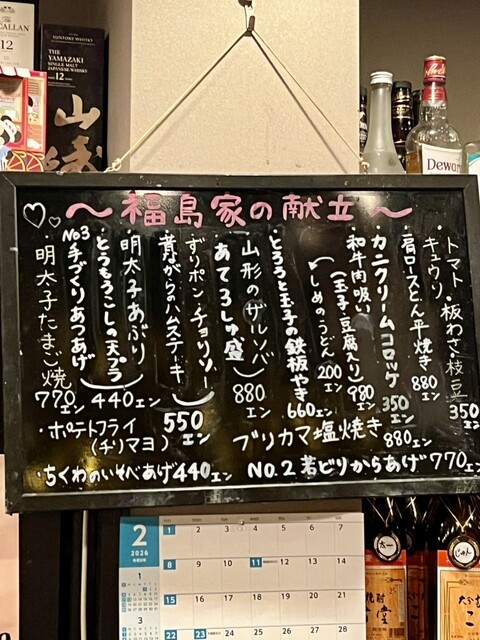 〜福島家の献立〜
トマト・板わさ・枝豆
キュウリ
350エン
・肩ロースとん平焼き
880エン
・カニクリームコロッケ
350エン
・和牛肉吸い
(玉子・豆腐入り)
980エン
しめのうどん
200エン
・とろろと玉子の鉄板やき
660エン
・山形のザルソバ
880エン
あてろしゅ盛
ずりポン・チョリソー
昔ながらのハムステーキ
550エン
明太子あぶり
とうもろこしの天プラ
No3 手づくりあつあげ
440エン
明太子たまご焼
770エン
・ポテトフライ
(チリマヨ)
ブリカマ塩焼き
880エン
・ちくわのいそべあげ440エン
No.2 若どりからあげ770エン
THE YAMAZAKI
SINGLE MALT
JAPANESE WHISKY
12
SUNTORY WHISKY
MACALLAN
12
Dewar
2
2026
1
2
3
4
5
6
7
8
9
10
11
12
13
14
15
16
17
18
19
20
21
22
23
24
25
26
27
28
3